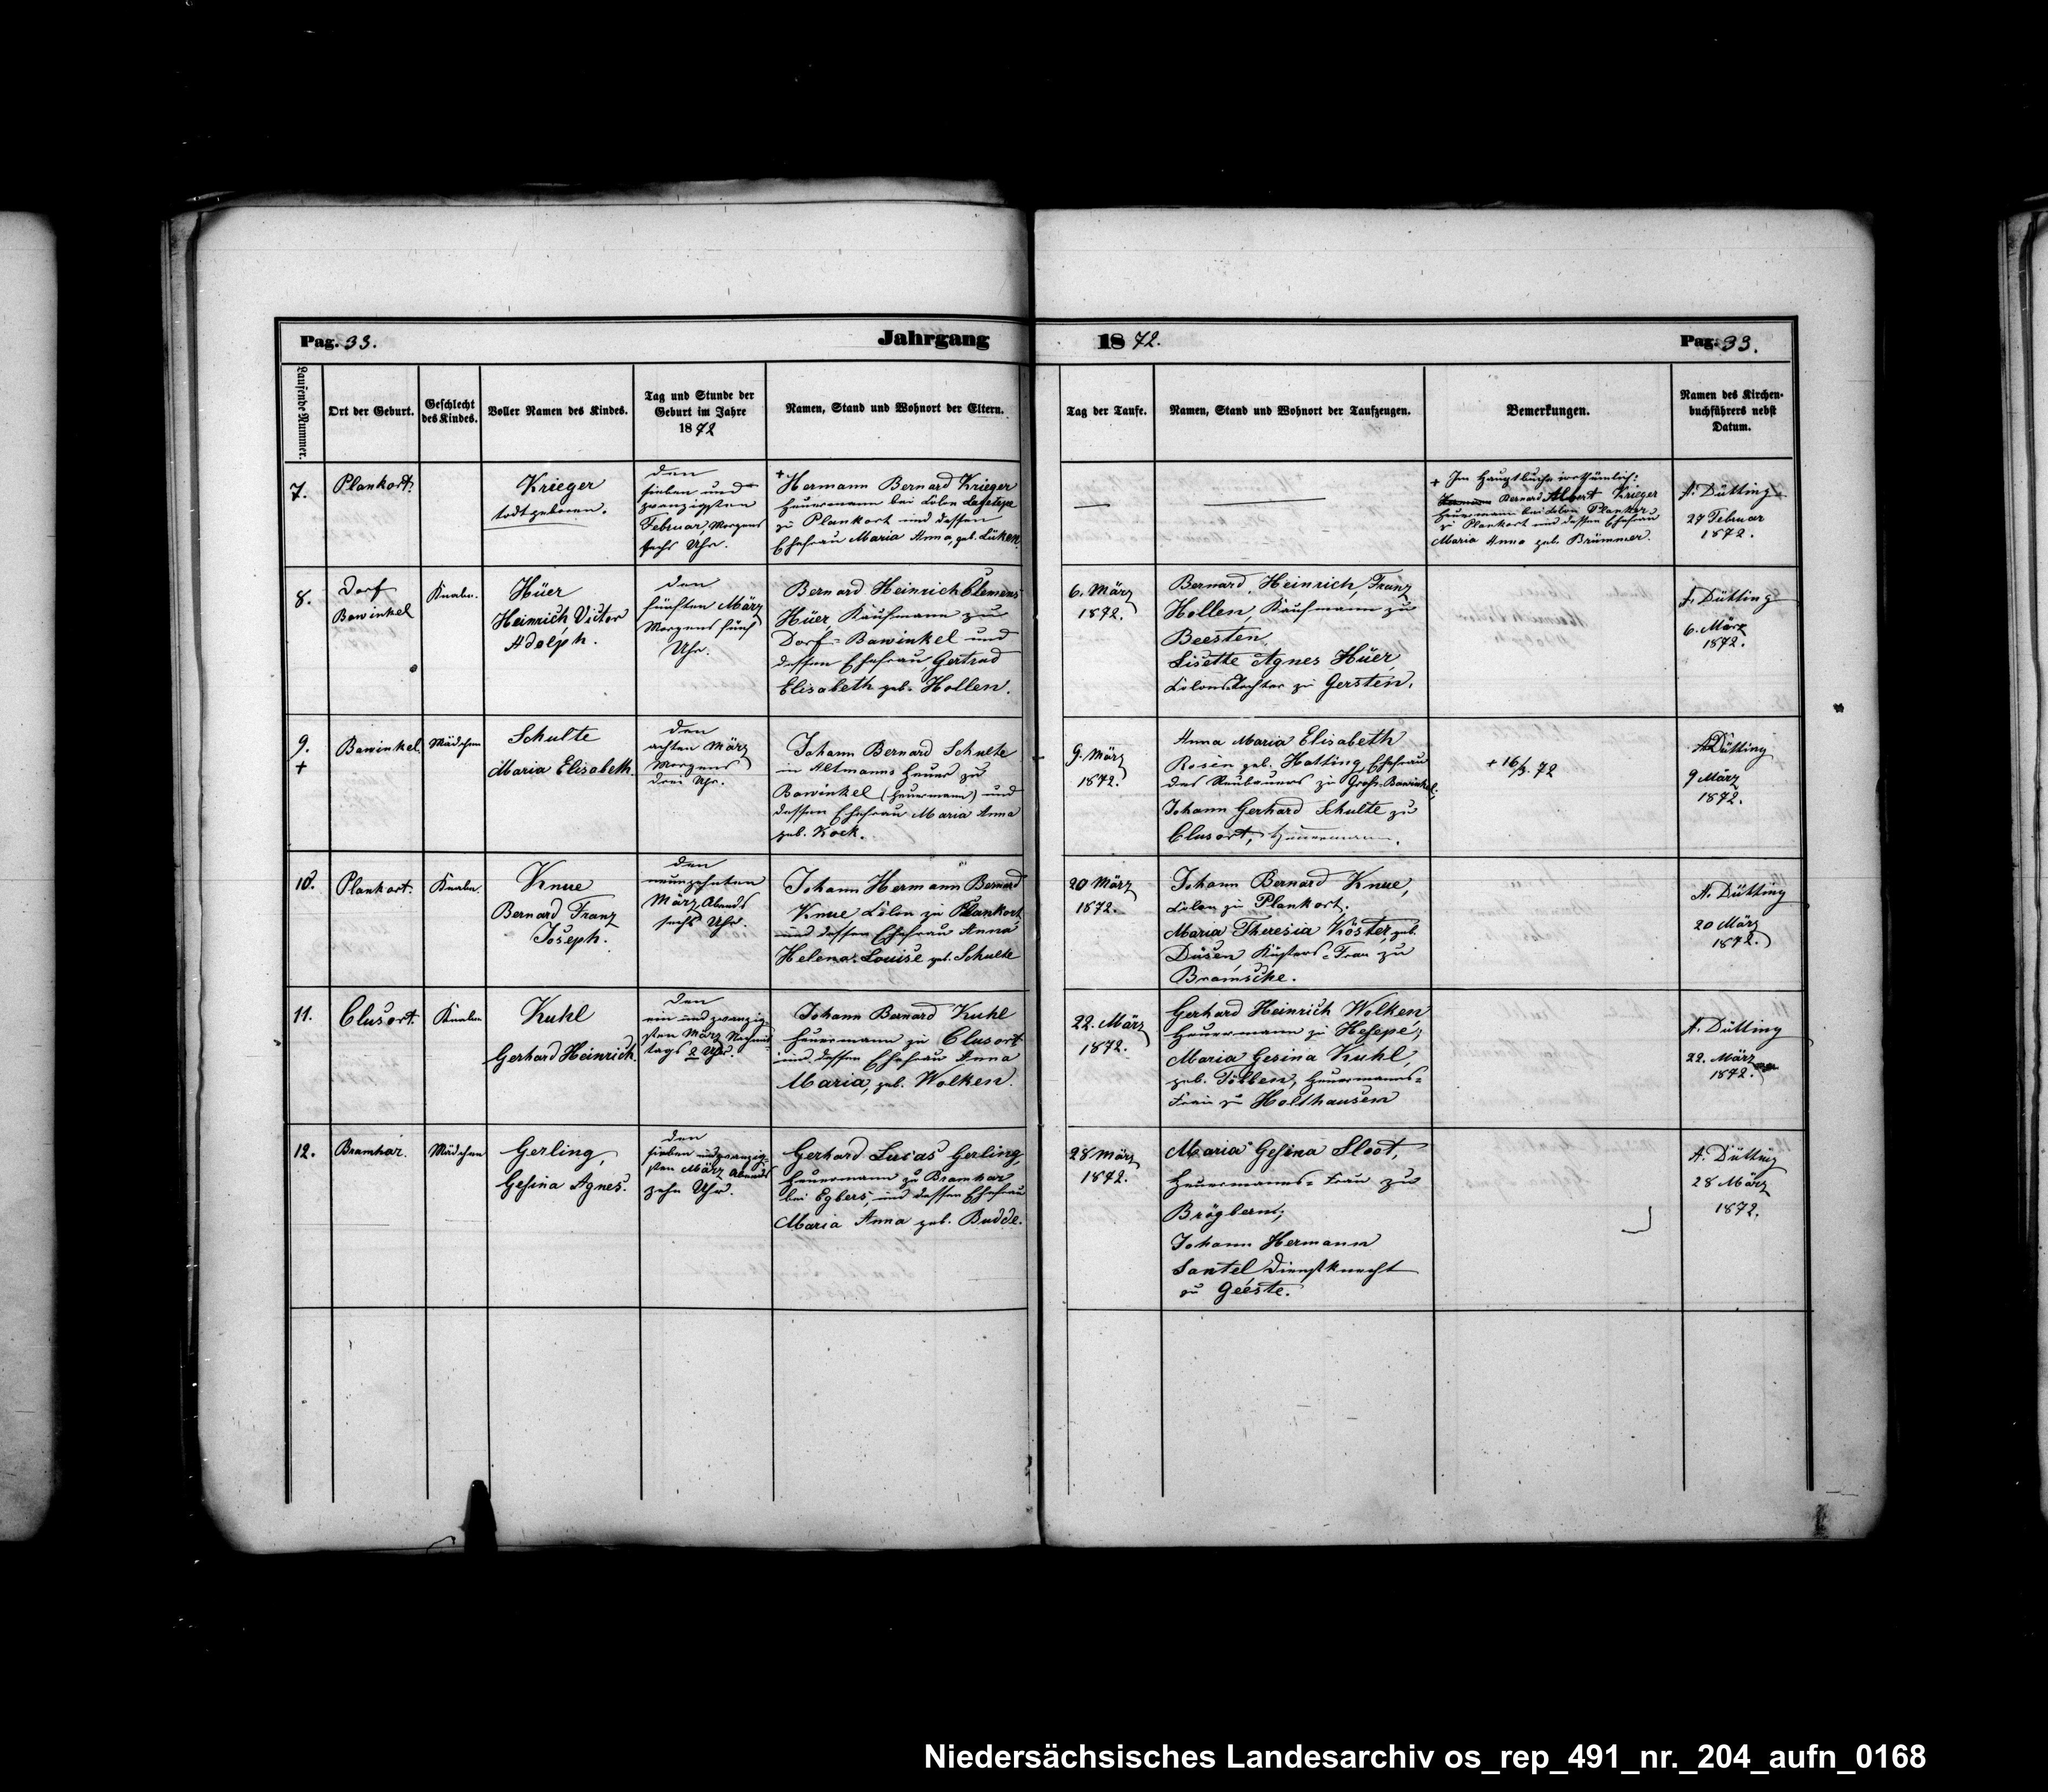 Pag. 33.
Jahrgang 1872.
Pag. 33.
Laufende Nummer.
Ort der Geburt.
Geschlecht
des Kindes.
Voller Namen des Kindes.
Tag und Stunde der
Geburt im Jahre
1872
Namen, Stand und Wohnort der Eltern.
Tag der Taufe.
Namen, Stand und Wohnort der Taufzeugen.
Bemerkungen.
Namen des Kirchen-
buchführers nebst
Datum.
7.
Plankort.
Krieger
todtgeboren.
den
sieben und
zwanzigsten
Februar, Morgens
sechs Uhr.
+ Hermann Bernard Krieger
Heuermann bei Colon
zu Plankort und dessen
Ehefrau Maria Anna, geb. Lüken.
+ Im Hauptbuche irrthümlich:
Hermann Bernard Albert Krieger
Heuermann bei Colon Planker
zu Plankort und dessen Ehefrau
Maria Anna geb. Brümmer.
A. Dütting
27 Februar
1872.
8.
Dorf
Bawinkel
Knabe.
Hüer
Heinrich Victor
Adolph.
den
fünften März
Morgens fünf
Uhr.
Bernard Heinrich Clemens
Hüer, Kaufmann zu
Dorf-Bawinkel und
dessen Ehefrau Gertrud
Elisabeth geb. Hollen.
6. März
1872.
Bernard, Heinrich, Franz
Hollen, Kaufmann zu
Beesten
Lisette Agnes Hüer,
Colonstochter zu Gersten.
A. Dütting
6. März
1872.
9.
+
Bawinkel
Mädchen
Schulte
Maria Elisabeth.
den
achten März
Morgens
drei Uhr.
Johann Bernard Schulte
in Altmanns Heuer zu
Bawinkel (Heuermann) und
dessen Ehefrau Maria Anna
geb. Kock.
9. März
1872.
Anna Maria Elisabeth
Rosin geb. Hatting, Ehefrau
des Neubauers zu Groß-Bawinkel;
Johann Gerhard Schulte zu
Clusort, Heuermann.
+ 16/3. 72
A. Dütting
9 März
1872.
10.
Plankort.
Knabe.
Knue
Bernard Franz
Joseph.
den
neunzehnten
März, Abends
sechs Uhr.
Johann Hermann Bernard
Knue, Colon zu Plankort
und dessen Ehefrau Anna
Helena Louise geb. Schulte
20 März
1872.
Johann Bernard Knue,
Colon zu Plankort,
Maria Theresia Köster, geb.
Düsen Küsters-Frau zu
Bramsche.
A. Dütting
20 März
1872.
11.
Clusort.
Knabe
Kuhl
Gerhard Heinrich.
den
ein und zwanzig-
sten März Nachmit
tags 2 Uhr.
Johann Bernard Kuhl
Heuermann zu Clusort
und dessen Ehefrau Anna
Maria, geb. Wolken.
22. März
1872.
Gerhard Heinrich Wolken
Heuermann zu Hesepe;
Maria Gesina Kuhl,
geb. Többen, Heuermanns-
Frau zu Holthausen
A. Dütting
22. März
1872.
12.
Bramhar.
Mädchen
Gerling,
Gesina Agnes.
den
sieben und zwanzig-
sten März Abends
zehn Uhr.
Gerhard Lucas Gerling,
Heuermann zu Bramhar
bei Egbers, und dessen Ehefrau
Maria Anna geb. Budde.
28 März
1872.
Maria Gesina Sloot,
Heuermanns-Frau zu
Brögbern;
Johann Hermann
Santel Dienstknecht
zu Geeste.
A. Dütting
28 März
1872.
Niedersächsisches Landesarchiv os_rep_491_nr._204_aufn_0168